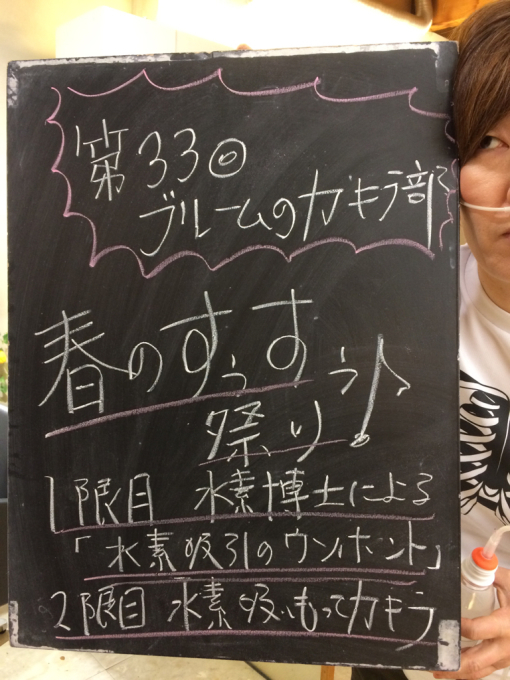 第33回
ブルームのガキラ部
春のすぅすぅ♪
祭り
1限目 水素博士による
「水素吸引のウソ・ホント」
2限目 水素吸いもってガキラ